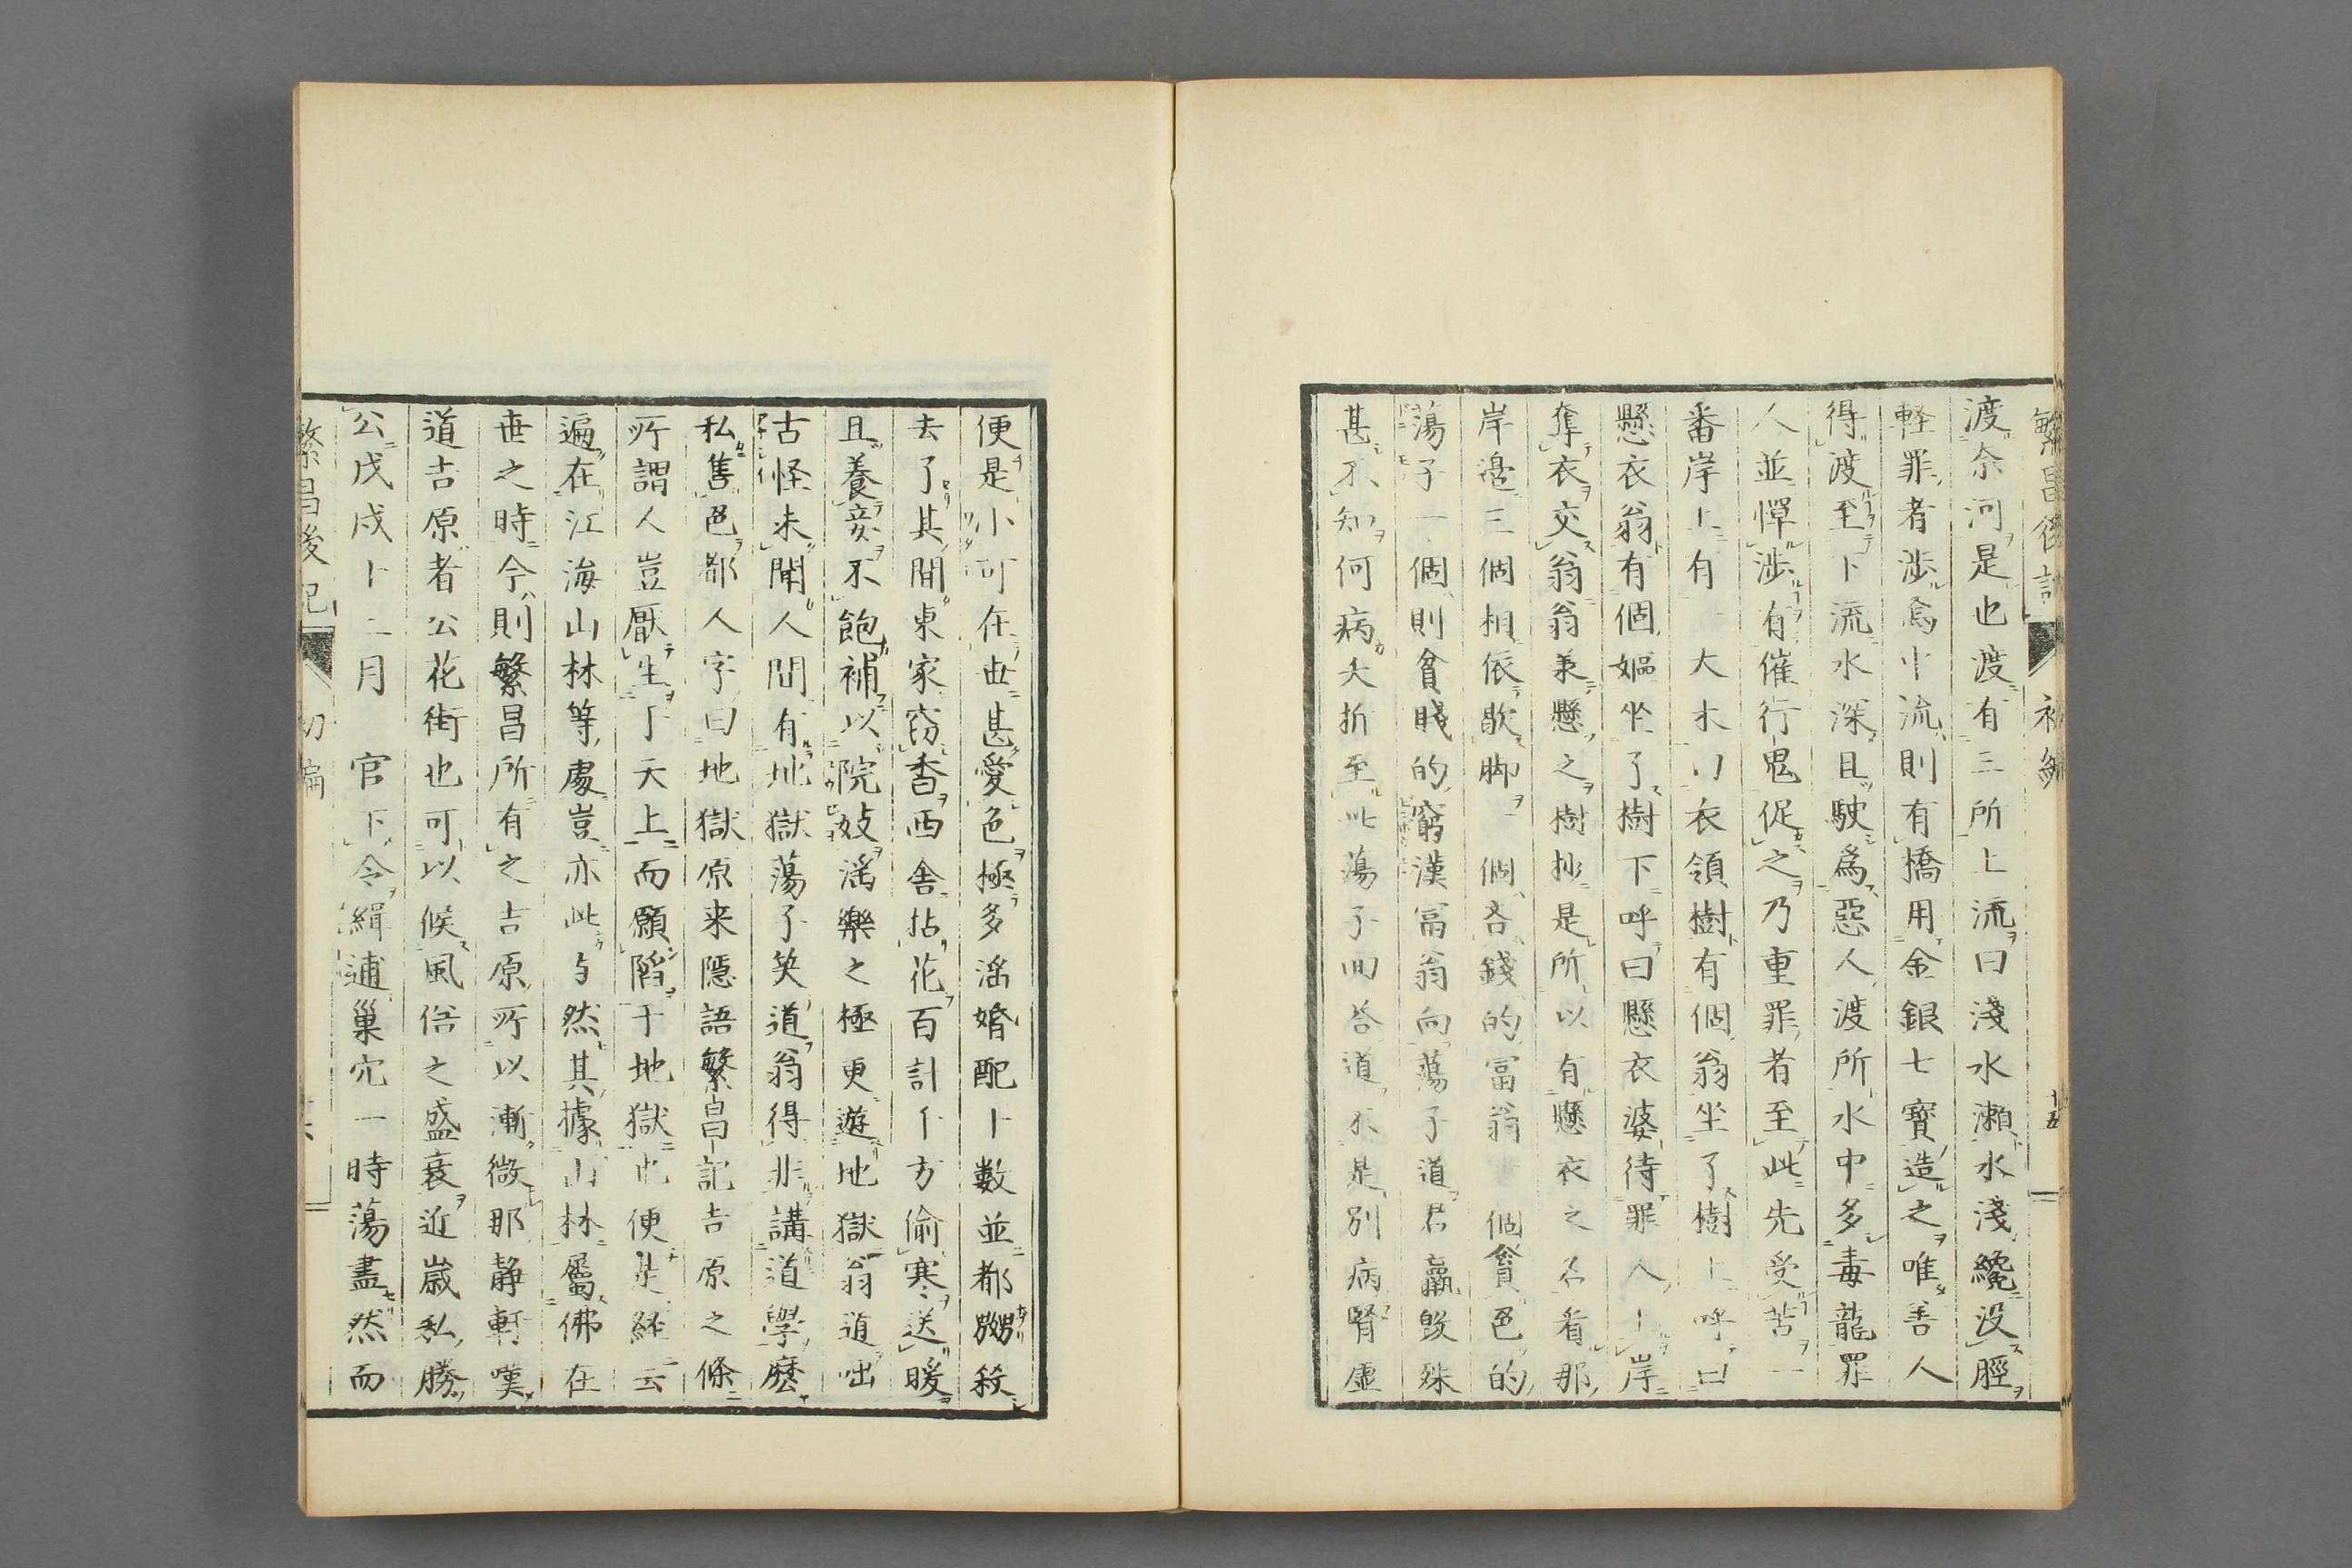 繁昌後記 初編 十五
渡奈河是也渡有三所上流曰淺水瀬水淺纔没脛
軽罪者渉焉中流則有橋用金銀七寳造之唯善人
得渡至下流水深且駛爲惡人渡所水中多毒龍罪
人並憚渉有催行鬼促之乃重罪者至此先受苦一
番岸上有一大木曰衣領樹有個翁坐了樹上呼曰
懸衣翁有個嫗坐了樹下呼曰懸衣婆待罪人上岸
奪衣交翁翁兼懸之樹抄是所以有懸衣之名看那
岸邉三個相依歇脚一個吝錢的冨翁一個貪色的
蕩子一個則貧賤的窮漢冨翁向蕩子道君羸毀殊
甚不知何病夭折至此蕩子回答道不是別病腎虚
便是小可在世甚愛色極多滛婚配十數並都嬲殺
去了其間東家窃香西舎拈花百計千方偷寒送暖
且養妾不飽補以院妓滛樂之極更遊地獄翁道咄
古怪未聞人間有地獄蕩子笑道翁得非講道學麽
私售色都人字曰地獄原来隠語繁昌記吉原之條
所謂人豈厭生于天上而願陷于地獄也便是経云
遍在江海山林等處豈亦此与然其據山林屬佛在
世之時今則繁昌所有之吉原所以漸微那静軒嘆
道吉原者公花街也可以候風俗之盛衰近歳私勝
公戊戌十二月 官下令緝逋巣穴一時蕩盡然而
繁昌後記 初編 十六